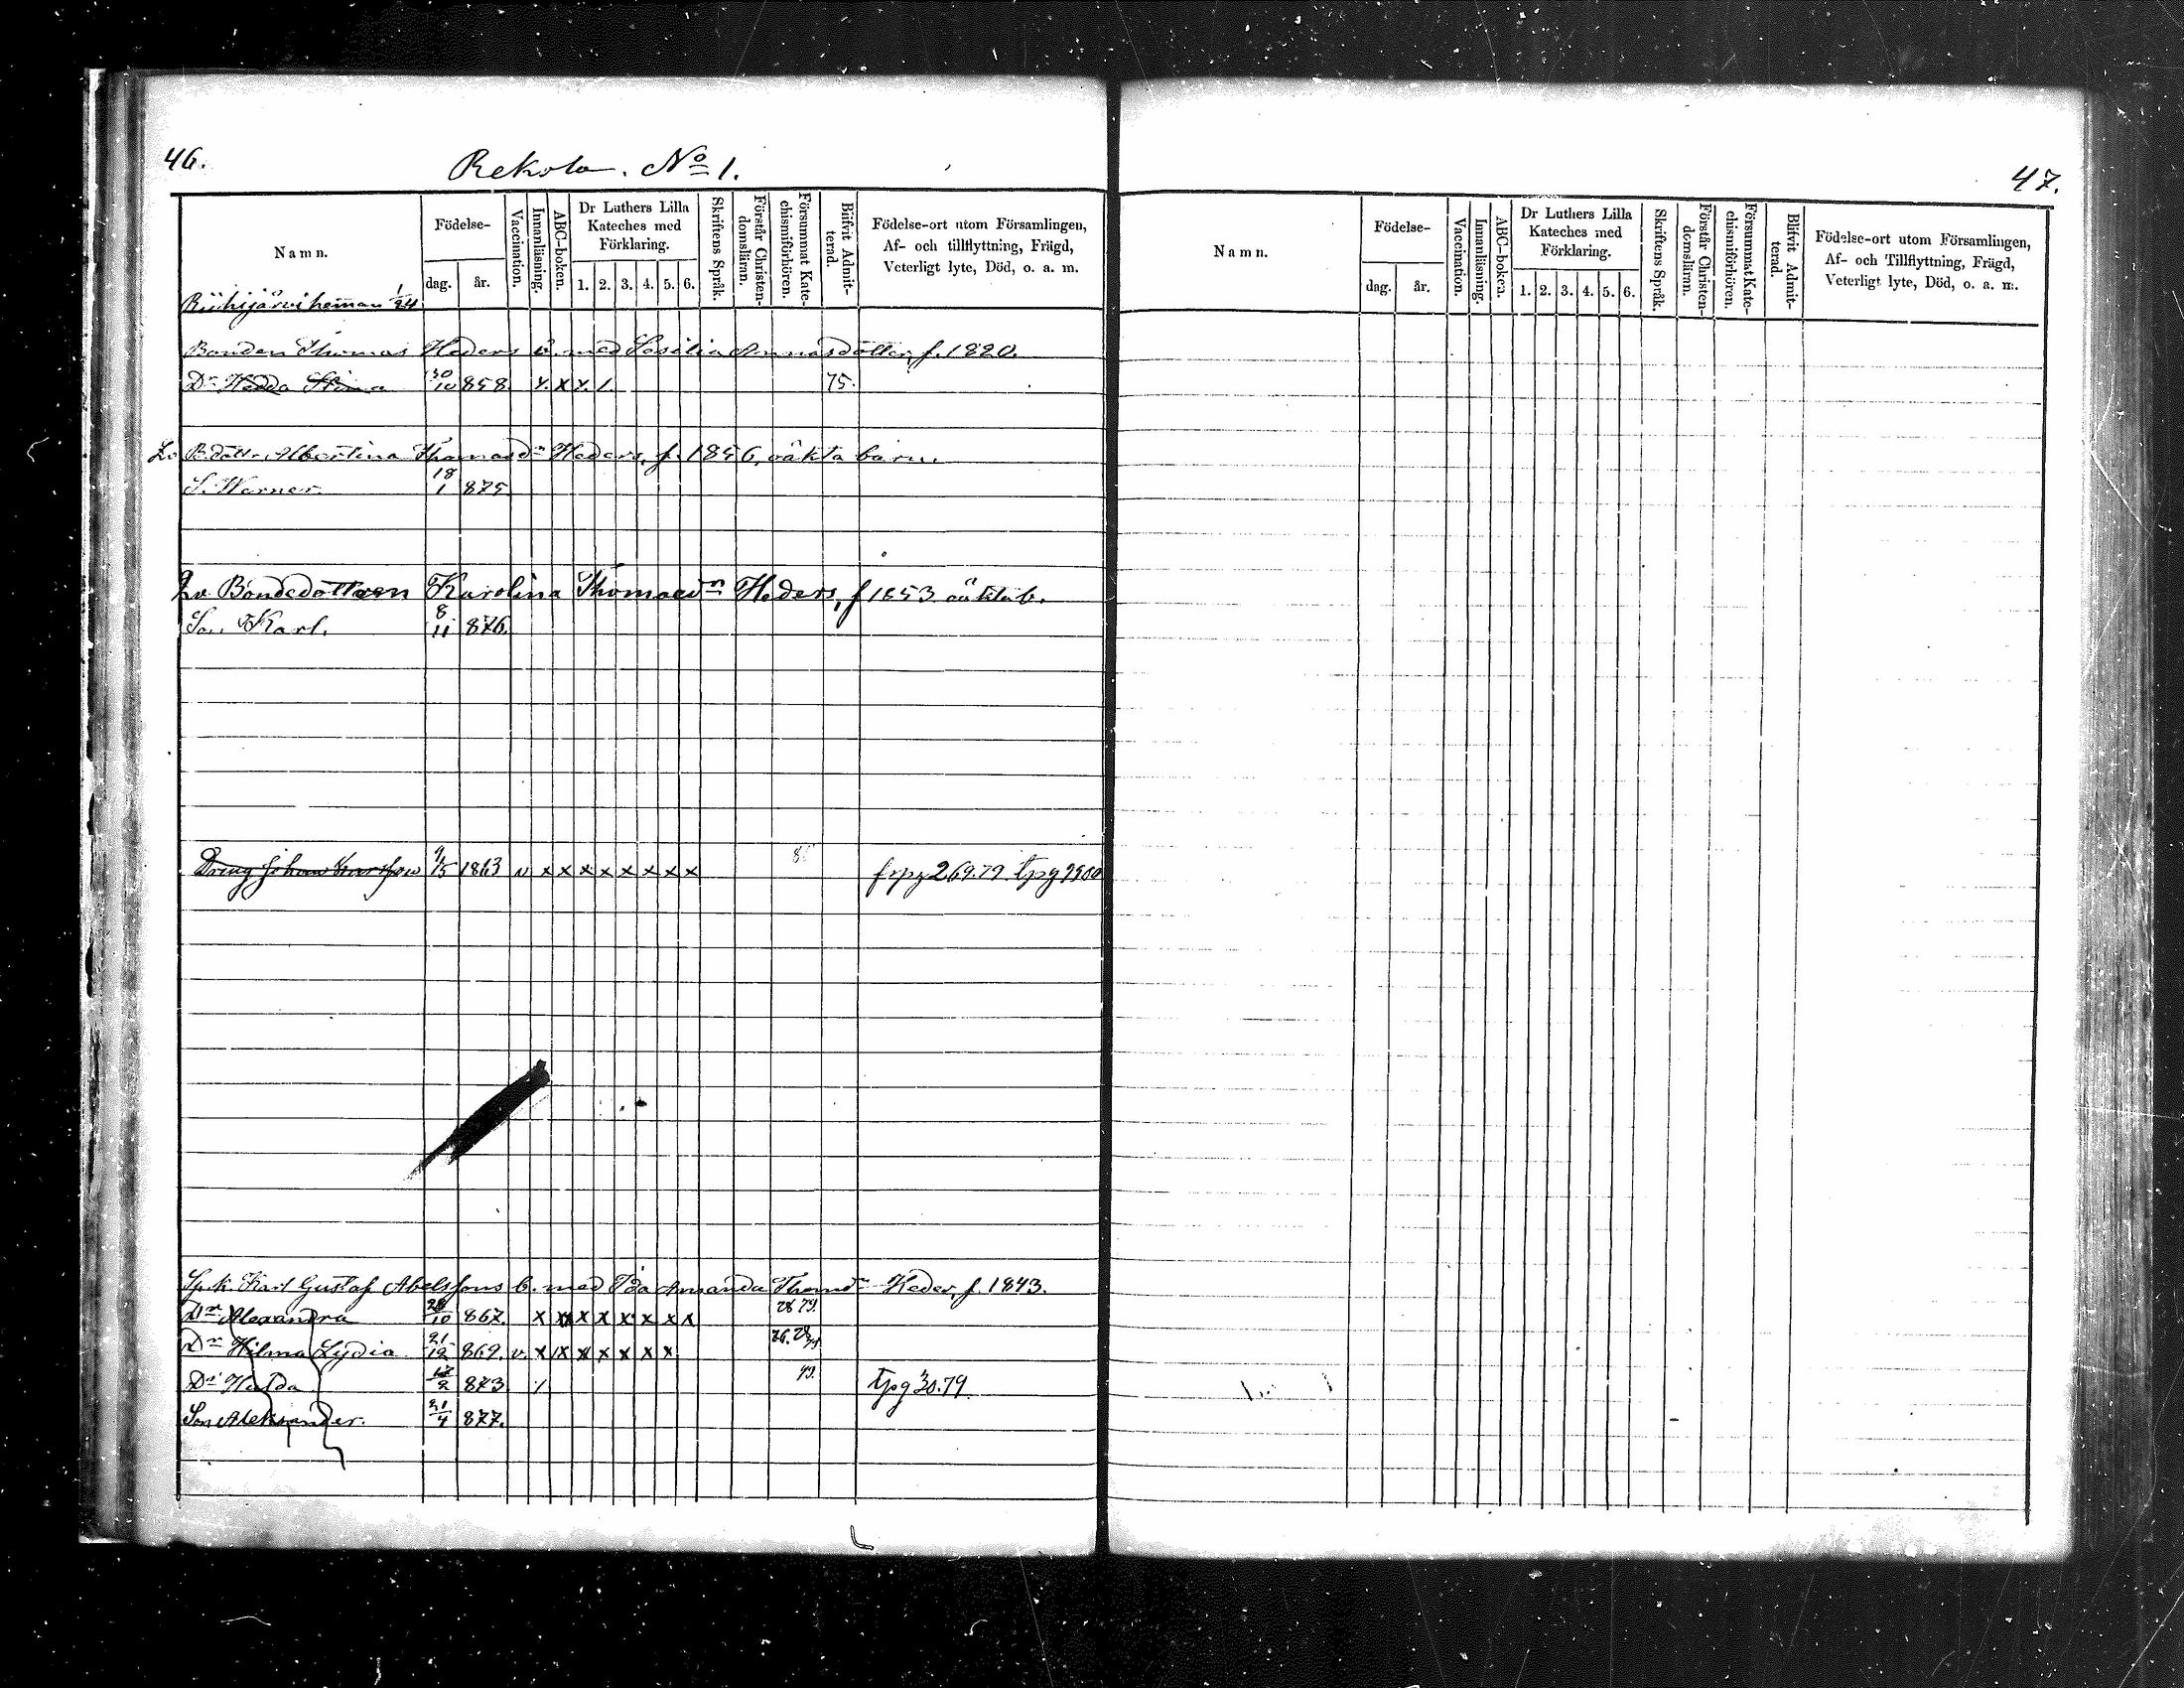 46.
Rekola. No 1.
Namn.
Födelse-
dag. år.
Vaccination.
Innanläsning.
ABC-boken.
Dr Luthers Lilla Kateches med Förklaring.
1. 2. 3. 4. 5. 6.
Skriftens Språk.
Förstår Christen-domsläran.
Försummat Kate-chismiförhören.
Blifvit Admit-terad.
Födelse-ort utom Församlingen,
Af- och tillflyttning, Frägd,
Veterligt lyte, Död, o. a. m.
Riihijärvi heman 1/24
Bonden Thomas Heders b. med Annasdotter, f. 1820.
Dr Hedda Stina 30/10 858 x. x x. 1. 75.
Albertina Thomasdr Heders, f. 1856, oäkta barn.
S. Werner 18/1 875
Bondedottren Karolina Thomasdr Heders, f 1853 oäkta b.
Son Karl. 8/11 876.
Dreng Johan 9/5 1863 v x x x x x x x x frpg 269.79. tpg
Karl Gustaf Abelssons b. med Ida Amanda Thomdr Heder, f. 1843.
Dr Alexandra 28/10 867. x x x x x x x x 28 79.
Dr Hilma Lydia 21/12 869. v. x x x x x x x
Dr Hulda 873 79. tpg 30.79
Son Aleksander. 21/4 877.
47.
Namn.
Födelse-
dag. år.
Vaccination.
Innanläsning.
ABC-boken.
Dr Luthers Lilla Kateches med Förklaring.
1. 2. 3. 4. 5. 6.
Skriftens Språk.
Förstår Christen-domslärnn.
Försummat Kate-chismiförhören.
Blifvit Admit-terad.
Födelse-ort utom Församlingen,
Af- och Tillflyttning, Frägd,
Veterligt lyte, Död, o. a. m.